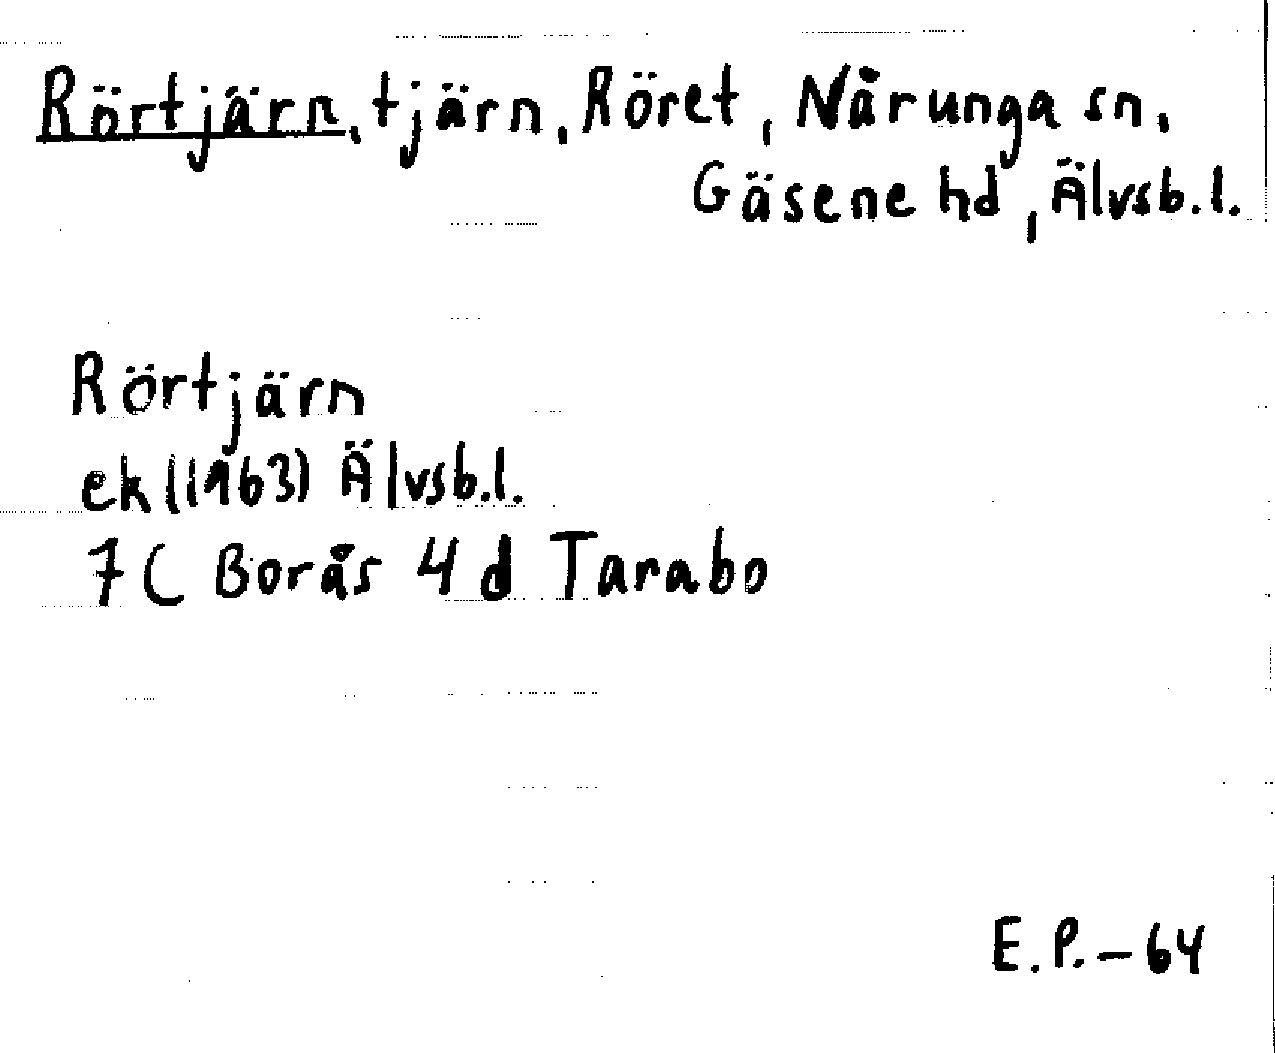 Rörtjärn, tjärn, Röret, Nårunga sn,
Gäsene hd, Älvsb.l.
Rörtjärn
ek (1963) Älvsb.l.
7C Borås 4d Tarabo
E.P.-64